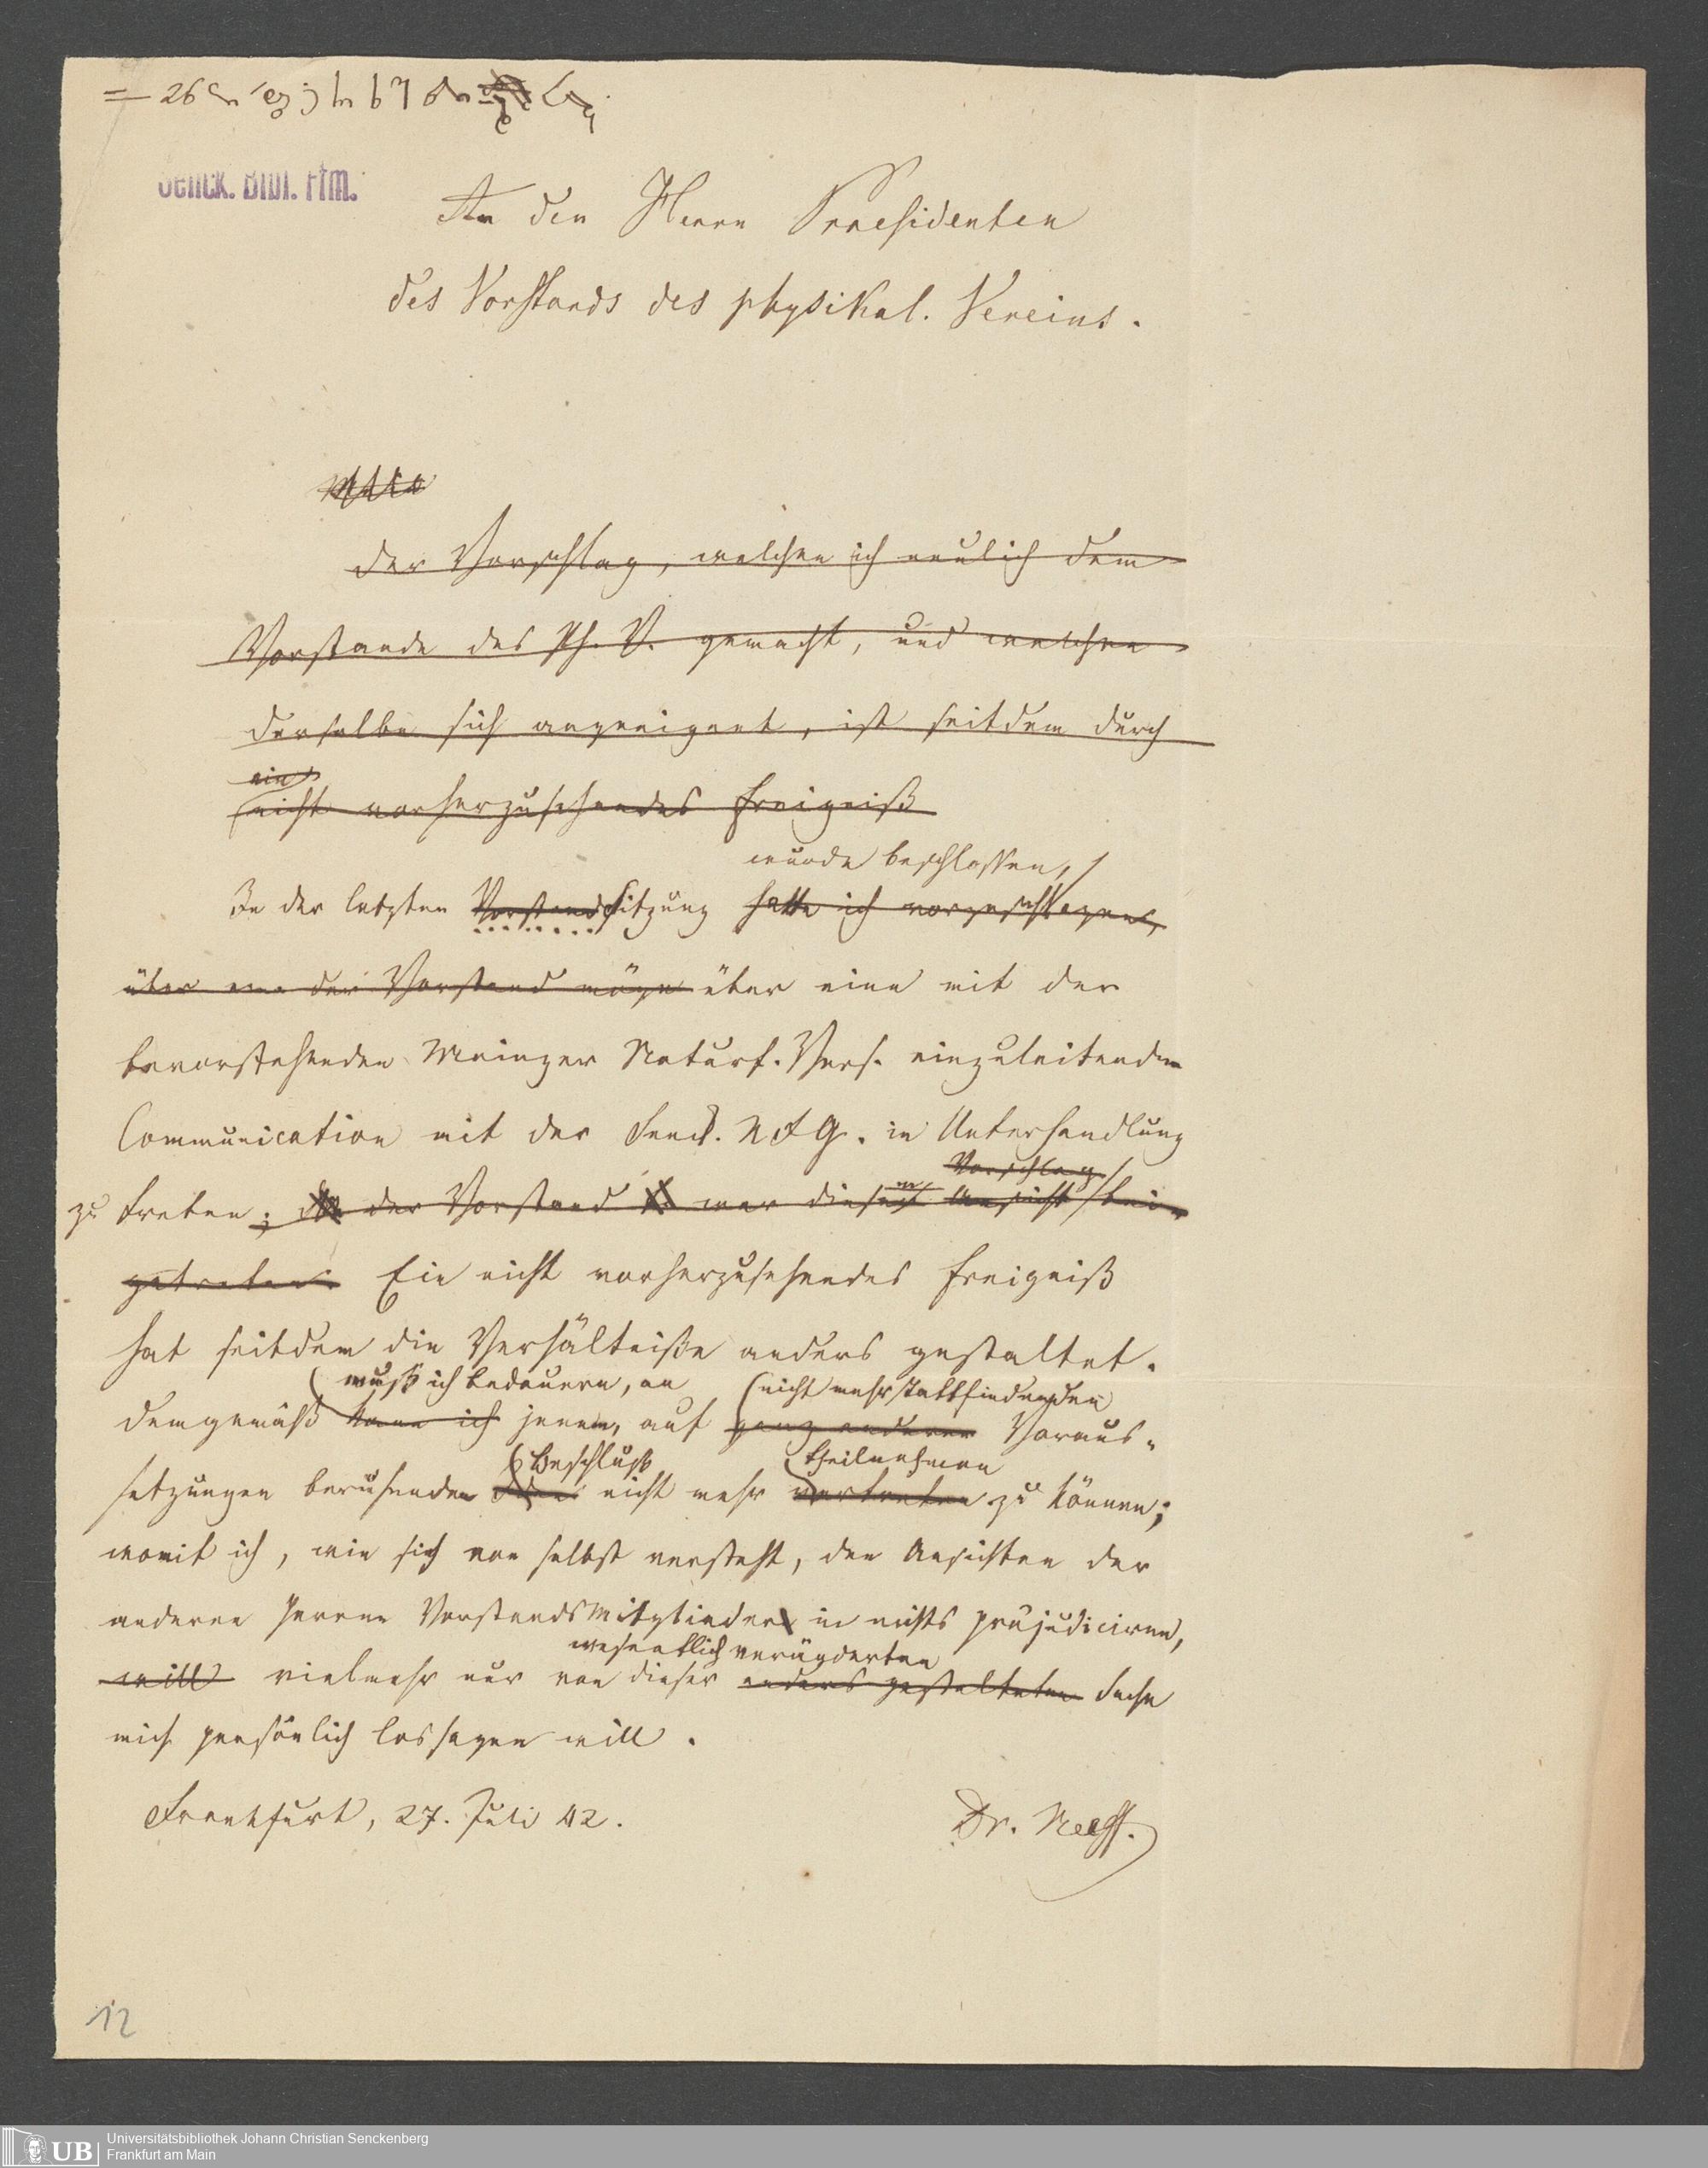 Senck. Bibl. Ffm.
An den Herrn Praesidenten
des Vorstands des physikal. Vereins.
Der Vorschlag, welchen ich neulich dem
Vorstande des Ph. V. gemacht, und welchen
derselbe sich angeeignet, ist seitdem durch
ein
nicht vorherzusehendes Ereigniß
wurde beschlossen,
In der letzten Vorstandssitzung hatte ich vorgeschlagen,
über eine der Vorstand möge über eine mit der
bevorstehenden Mainzer Naturf. Vers. einzuleitende
Communication mit der Senck. NFG. in Unterhandlung
Vorschlag
zu treten; der Vorstand war dieser Ansicht bei-
getreten. Ein nicht vorherzusehendes Ereigniß
hat seitdem die Verhältniße anders gestaltet.
muß ich bedauern, an nicht mehr stattfindenden
Demgemäß kann ich jenem, auf ganz anderen Voraus-
Beschluß theilnehmen
setzungen beruhenden nicht mehr vertreten zu können;
womit ich, wie sich von selbst versteht, den Ansichten der
anderen Herren Vorstandsmitglieder in nichts präjudiciren,
wesentlich veränderten
will vielmehr nur von dieser anders gestalteten Sache
mich persönlich lossagen will.
Frankfurt, 27. Juli 42.
Dr. Neeff.
12
UB
Universitätsbibliothek Johann Christian Senckenberg
Frankfurt am Main